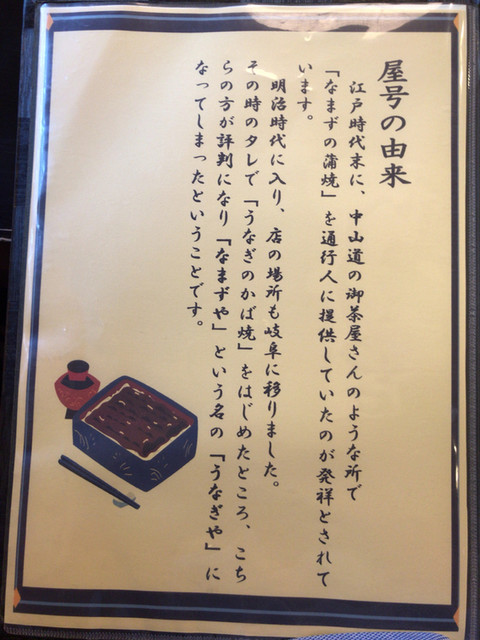 屋号の由来
江戸時代末に、中山道の御茶屋さんのような所で
「なまずの蒲焼」を通行人に提供していたのが発祥とされて
います。
明治時代に入り、店の場所も岐阜に移りました。
その時のタレで「うなぎのかば焼」をはじめたところ、こち
らの方が評判になり『なまずや』という名の『うなぎや』に
なってしまったということです。